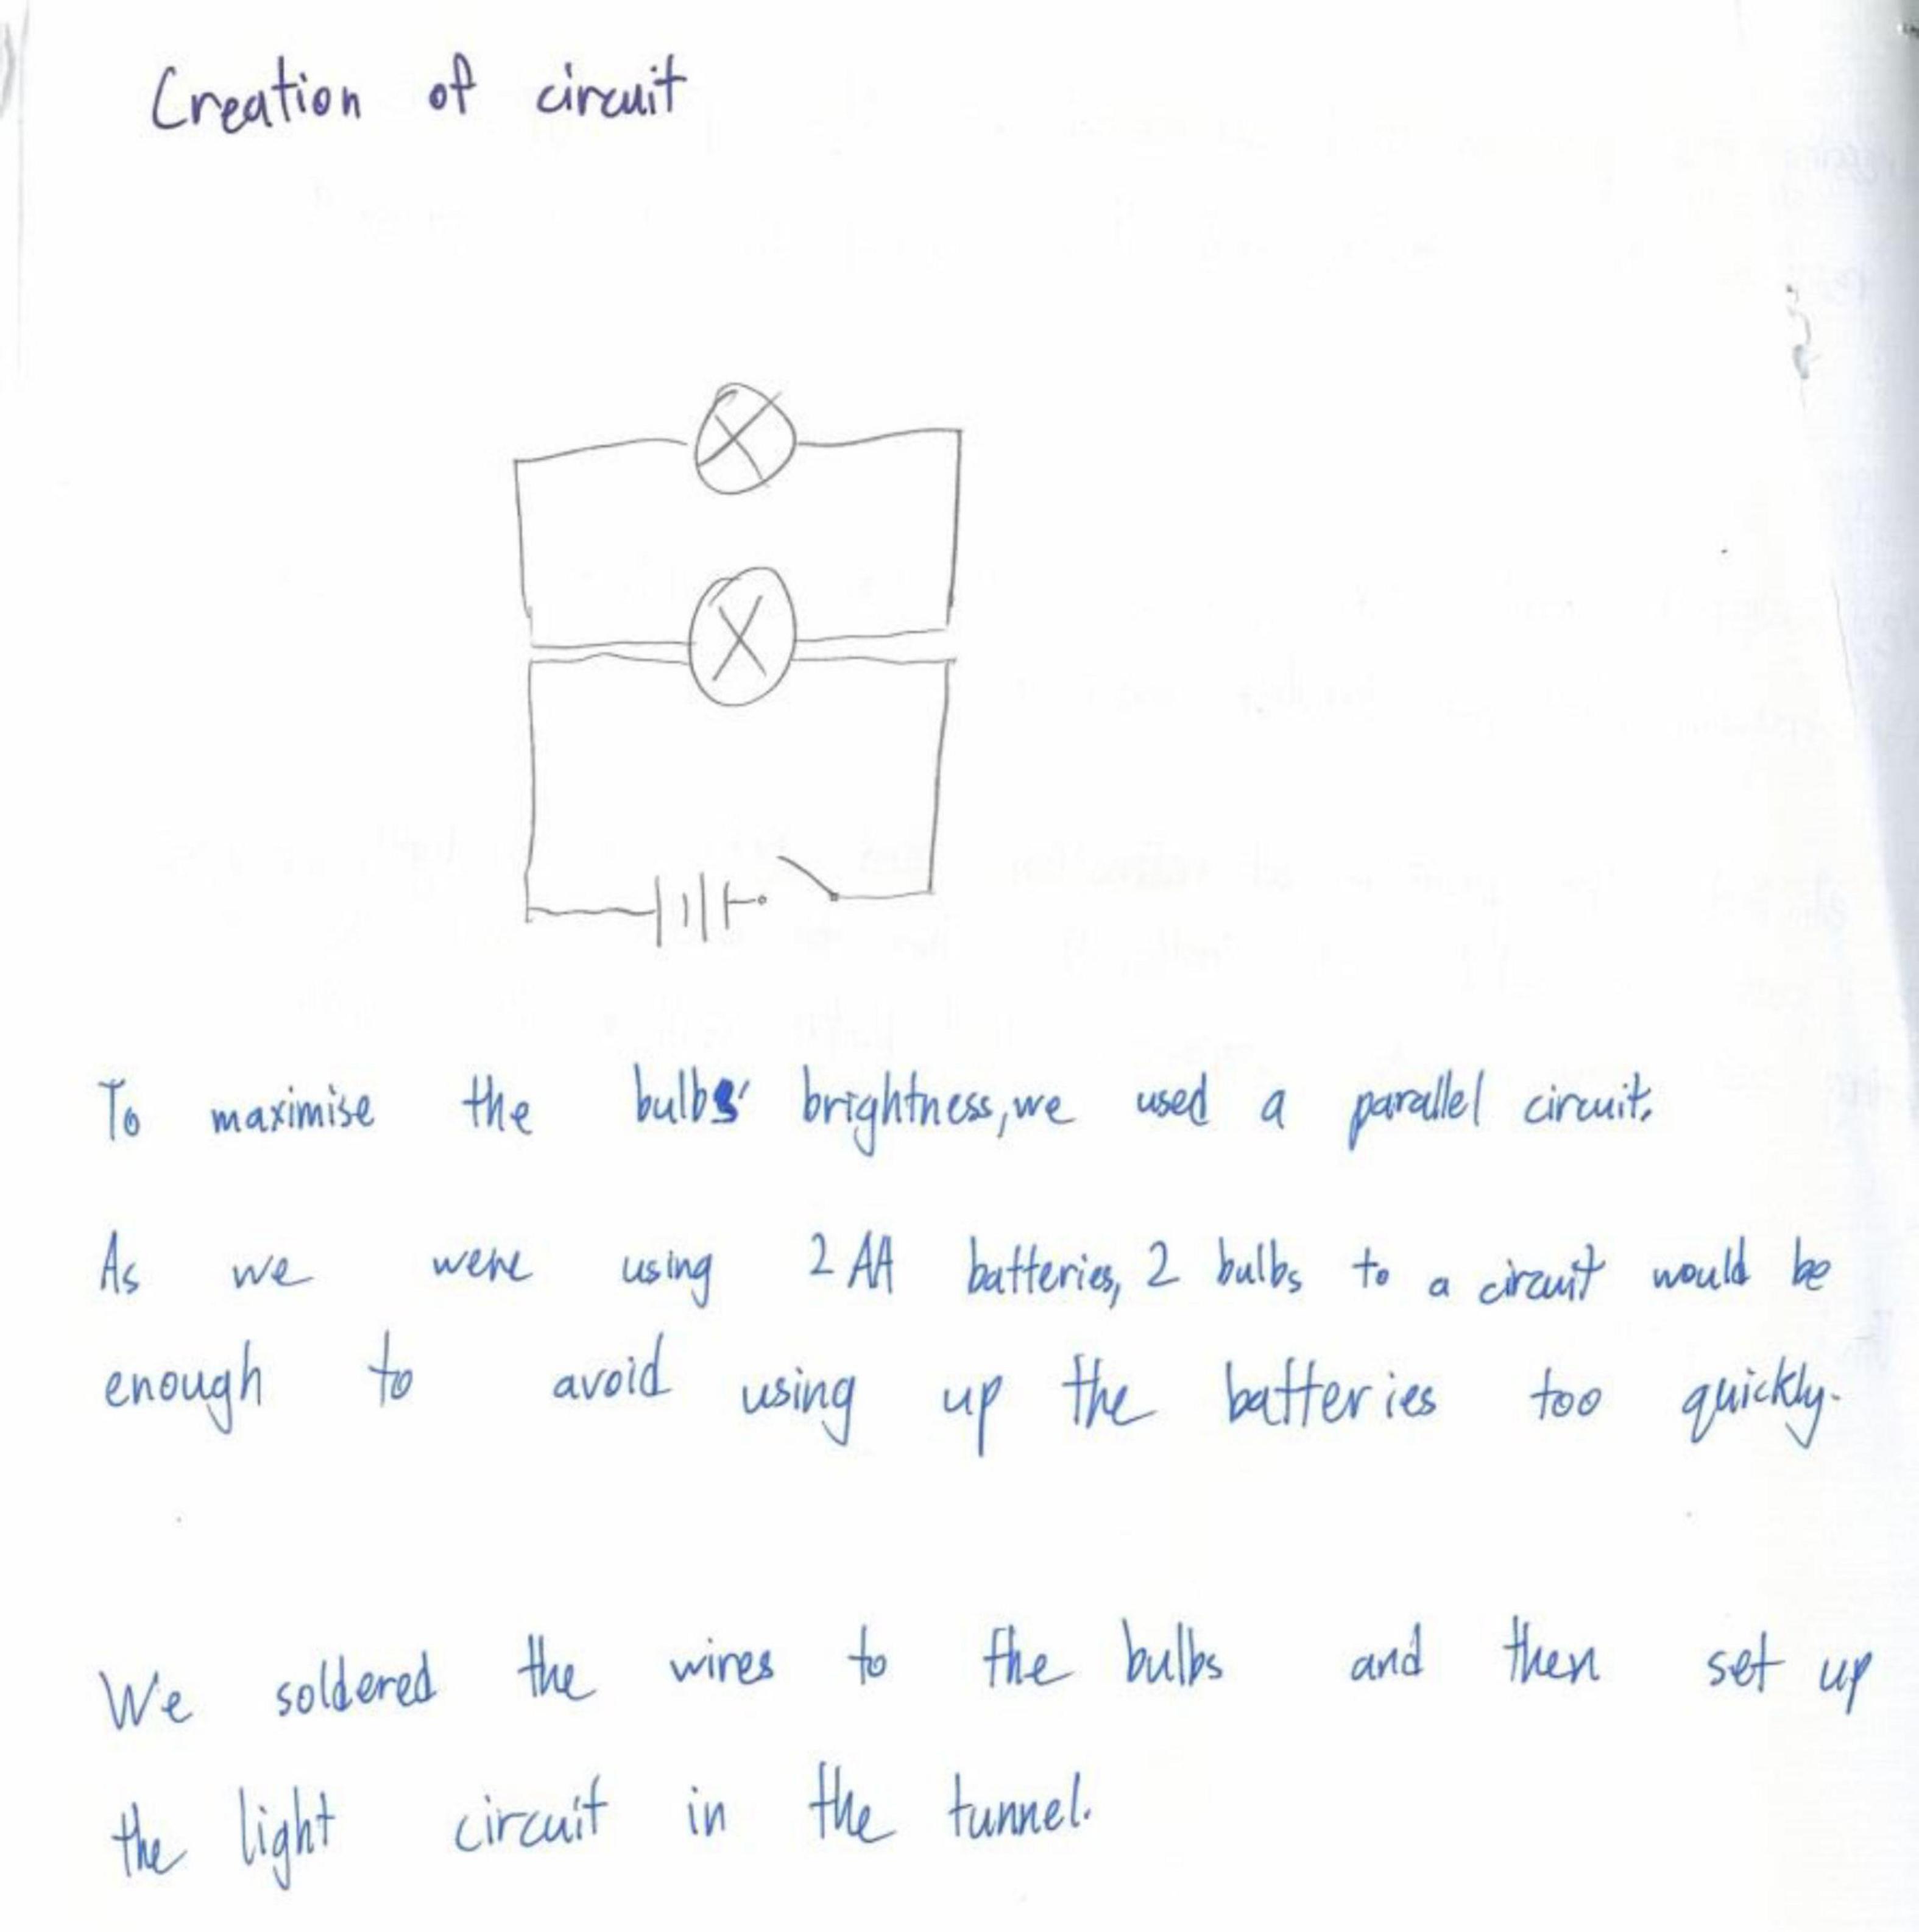 Creation of circuit
To maximise the bulbs' brightness, we used a parallel circuit.
As we were using 2 AA batteries, 2 bulbs to a circuit would be
enough to avoid using up the batteries too quickly.
We soldered the wires to the bulbs and then set up
the light circuit in the tunnel.